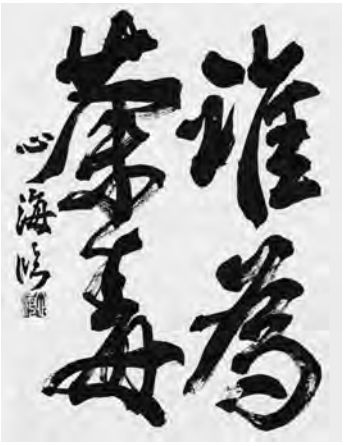 誰為
荼毒
心海臨